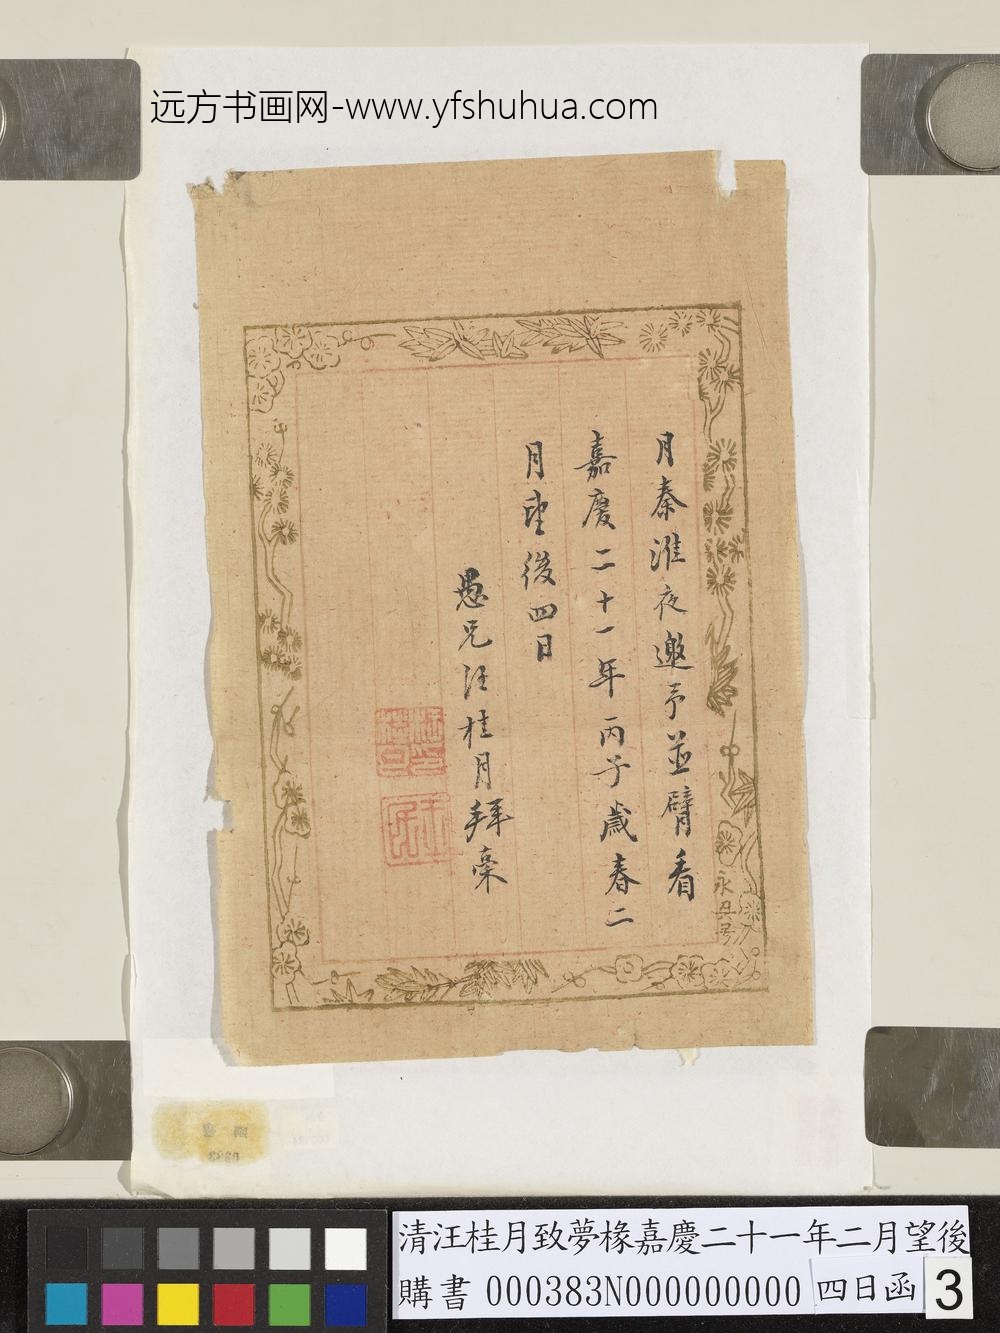 远方书画网-www.yfshuhua.com
月秦淮夜邀予並臂看
嘉慶二十一年丙子歲春二
月望後四日
愚兄汪桂月拜稾
永吳号
清汪桂月致夢椽嘉慶二十一年二月望後
購書 000383N000000000 四日函 3